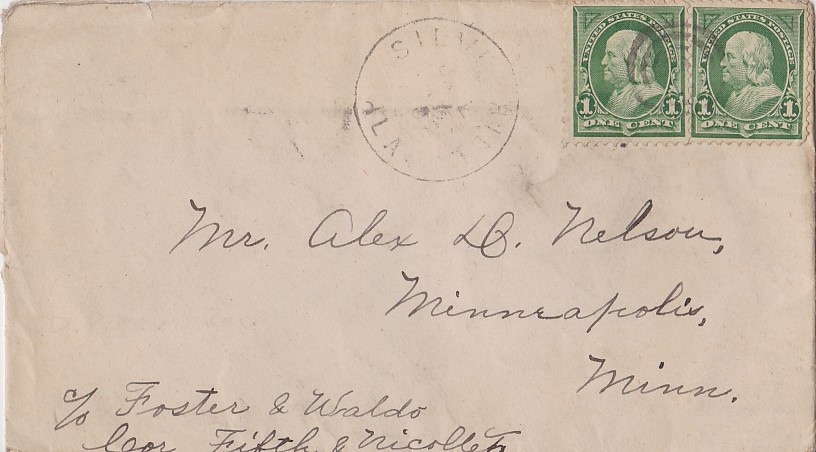 UNITED STATES POSTAGE UNITED STATES POSTAGE
1 1 1 1
ONE CENT ONE CENT
Mr. Alex D. Nelson,
Minneapolis,
Minn.
c/o Foster & Waldo
Cor Fifth & Nicollet